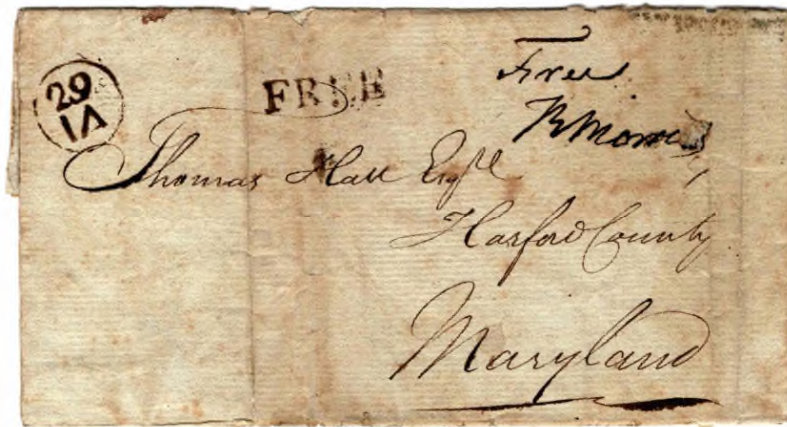 29
IA
FREE
Free
R Morris
Thomas Hall Esqre
Harford County
Maryland